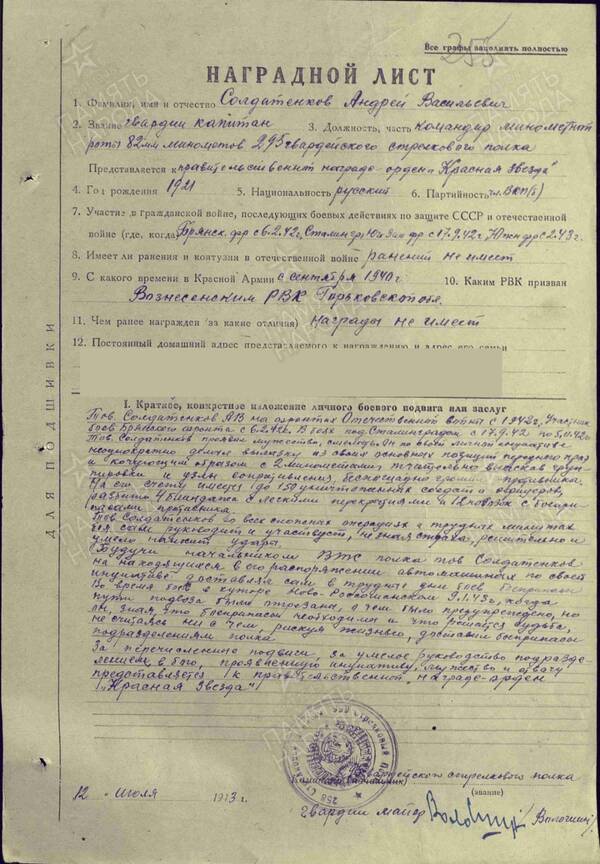 255
Все графы заполнять полностью
НАГРАДНОЙ ЛИСТ
1. Фамилия, имя и отчество Солдатенков Андрей Васильевич
2. Звание гвардии капитан 3. Должность, часть командир минометной
роты 82мм минометов 295 гвардейского стрелкового полка
Представляется к правительственной награде-ордену "Красная Звезда"
4. Год рождения 1911 5. Национальность русский 6. Партийность чл. ВКП(б)
7. Участие в гражданской войне, последующих боевых действиях по защите СССР и отечественной
войне (где, когда) Брянск. фр с 6.2.42г, Сталингр, Юго Зап фр с 17.9.42г, Южн фр с 2.43г.
8. Имеет ли ранения и контузии в отечественной войне ранений не имеет
9. С какого времени в Красной Армии с сентября 1940г 10. Каким РВК призван
Вознесенским РВК Горьковской обл.
11. Чем ранее награжден (за какие отличия) награды не имеет
12. Постоянный домашний адрес представляемого к награждению и адрес его семьи
I. Краткое, конкретное изложение личного боевого подвига или заслуг
Тов. Солдатенков АВ на фронтах Отечественной войны с 1942г, Участник
боев Брянского фронта с 6.2.42г. В боях под Сталинградом с 17.9.42
Тов. Солдатенков проявил мужество, смелость. Он по своей личной инициативе
неоднократно делал вылазку из своих основных позиций переднего края
и кочующим образом с 2 минометами тщательно выискав группировки и узлы сопротивления беспощадно громил противника.
На его счету имеется до 150 уничтоженных солдат и офицеров,
разбито 4 блиндажа с легкими перекрытиями и повозок с боеприпасами противника.
Тов Солдатенков во всех сложных операциях и трудных моментах
боя сам руководит и участвует, не зная страха, решительно и
умело наносит удары
Будучи начальником ВТС полка тов Солдатенков
на находящихся в его распоряжении автомашинах по своей
инициативе доставлял сам в трудные дни боев боеприпасы
Во время боя в хуторе Ново-Россошанском 9.1.43г, когда
пути подвоза были отрезаны, о чем было предупреждено, но
он, зная что боеприпасы необходимы и что решается судьба,
не считаясь ни с чем, рискуя жизнью, доставил боеприпасы
подразделениям полка.
За перечисленные подвиги, за умелое руководство подразделением в бою, проявленную инициативу, мужество и отвагу
представляется к правительственной награде-орден
"Красная Звезда"
гвардейского стрелкового полка
(звание)
12 июля 1943 г.
Гвардии майор Волошин
ДЛЯ ПОДШИВКИ
ПАМЯТЬ НАРОДА